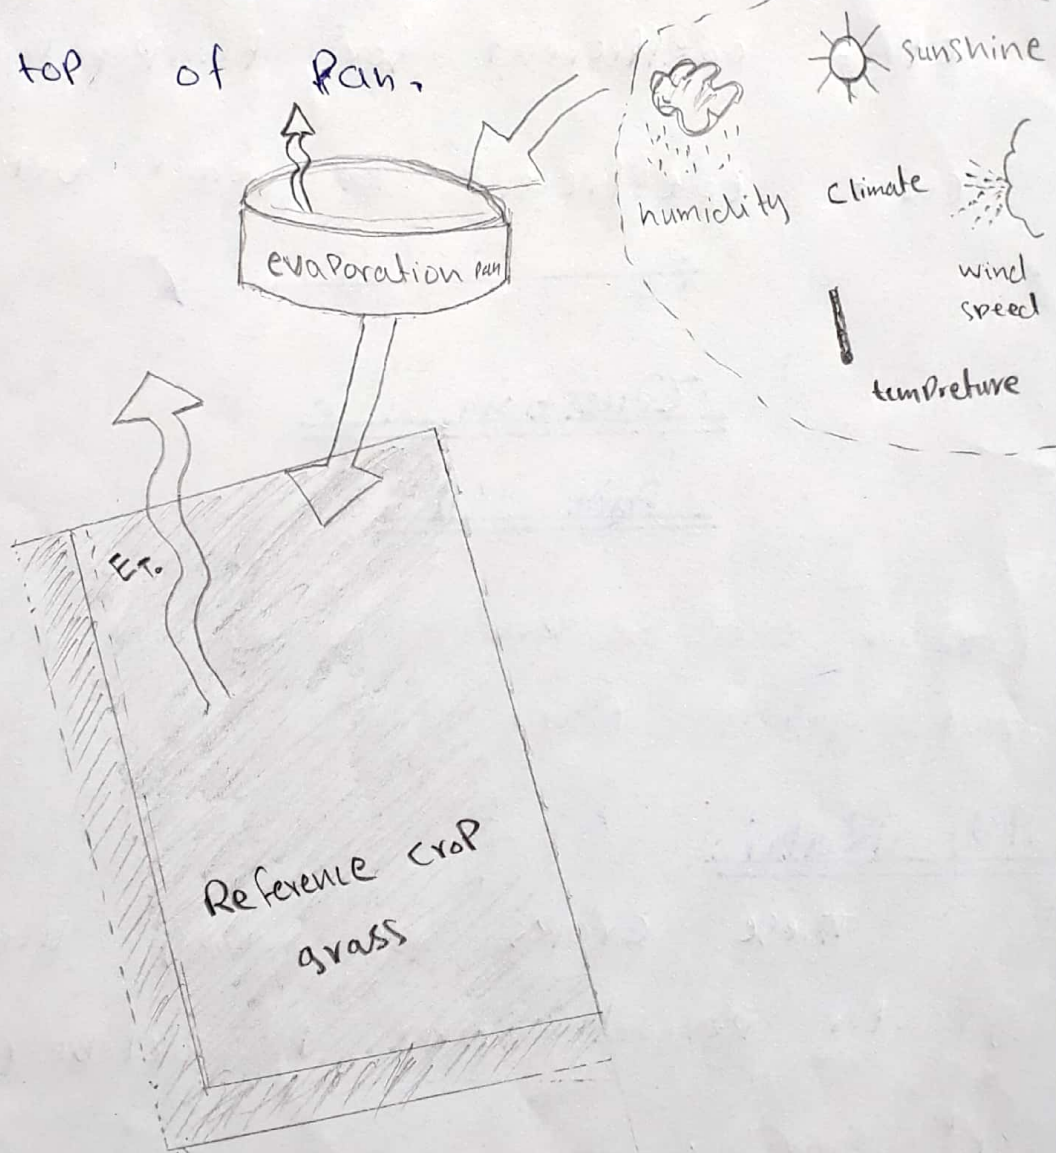 top of Pan.
sunshine
humidity
Climate
wind
speed
tempreture
evaparation pan
ET.
Reference crop
grass